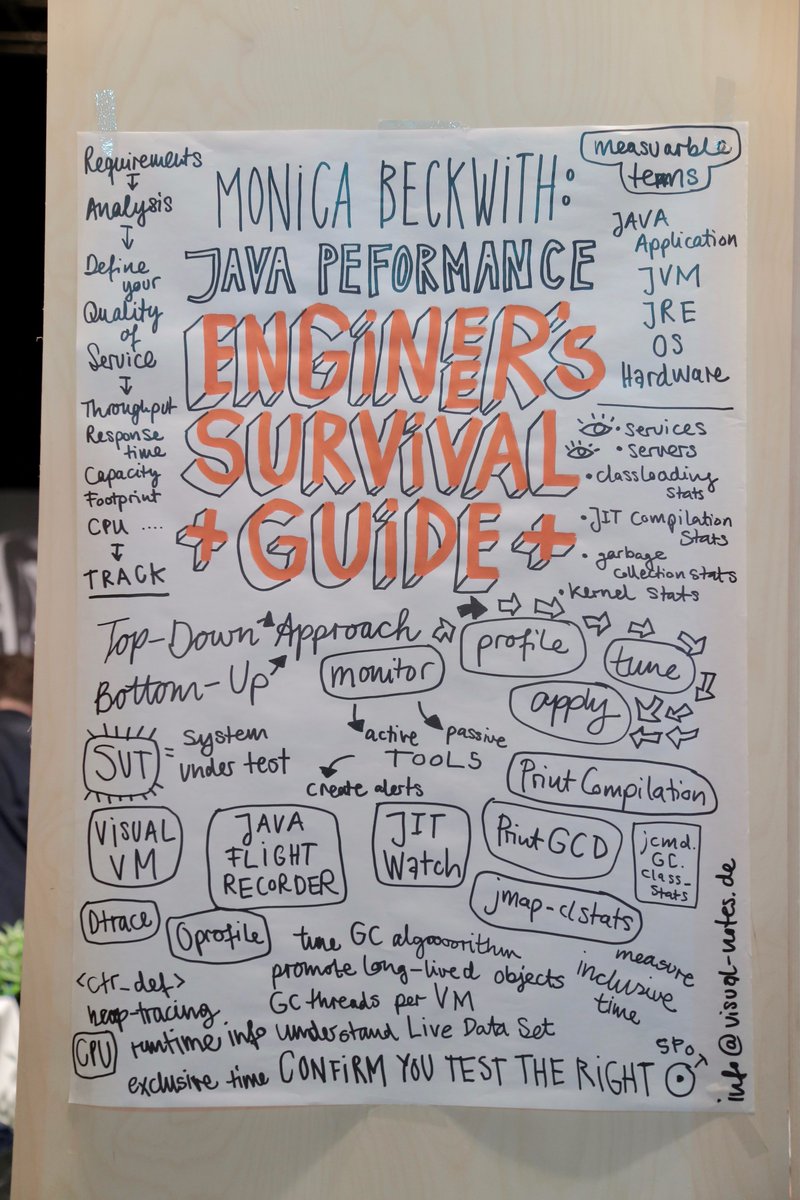 Requirements
Analysis
Define
your
Quality
of
Service
Throughput
Response
time
Capacity
Footprint
CPU ....
TRACK
MONICA BECKWITH:
JAVA PEFORMANCE
ENGINEER'S
SURVIVAL
+ GUIDE +
measuarble
terms
JAVA
Application
JVM
JRE
OS
Hardware
• services
• servers
• classloading
stats
• JIT Compilation
Stats
• garbage
collection stats
• kernel stats
Top-Down Approach
Bottom-Up
monitor
profile
tune
apply
active
passive
TOOLS
create alerts
SUT = System
under test
Print Compilation
VISUAL
VM
JAVA
FLIGHT
RECORDER
JIT
Watch
Print GCD
jcmd.
GC.
class_
stats
jmap-clstats
Dtrace
Oprofile
tune GC algooorithm
promote long-lived objects
GC threads per VM
understand Live Data Set
measure
inclusive
time
<ctr_def>
heap-tracing
CPU
runtime info
exclusive time
CONFIRM YOU TEST THE RIGHT
SPOT
info@visual-notes.de